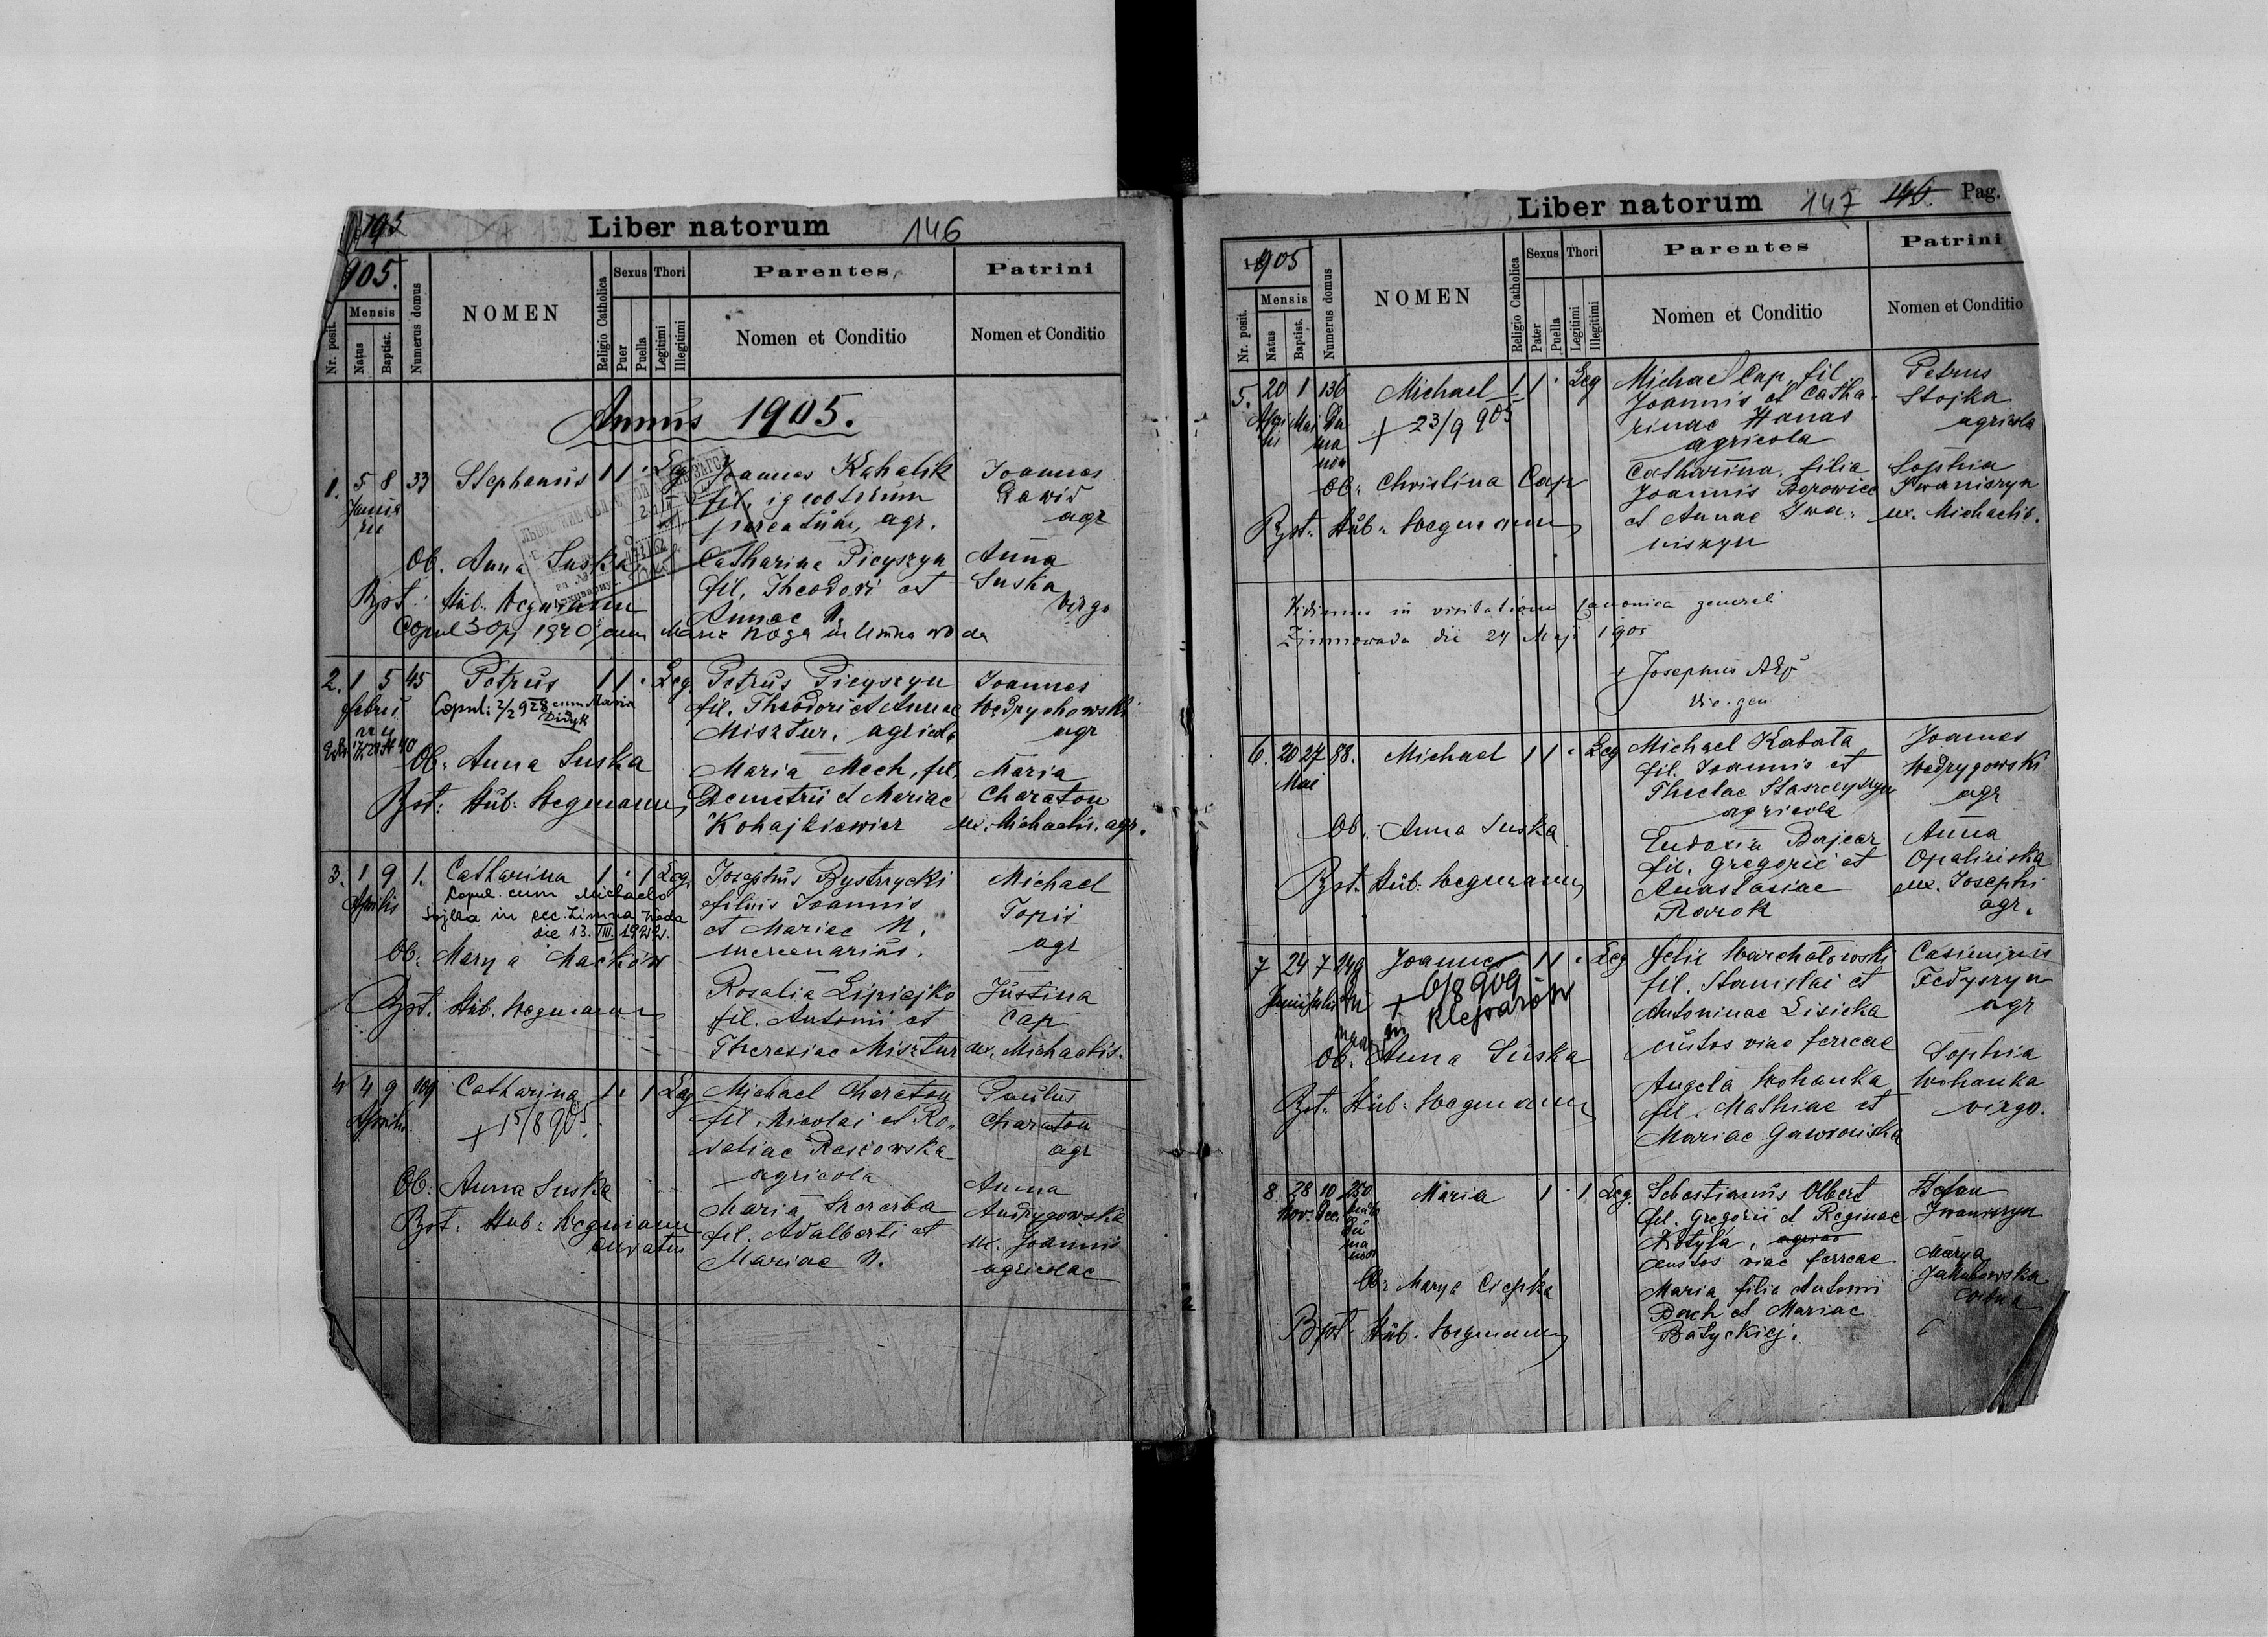 Liber natorum 146
905.
Nr. posit.
Mensis
Natus
Baptist.
Numerus domus
NOMEN
Religio Catholica
Sexus
Puer
Puella
Thori
Legitimi
Illegitimi
Parentes
Nomen et Conditio
Patrini
Nomen et Conditio
Annus 1905.
1. 5 8 33 Stephanus 1 1 · Leg Joannes Kahalik Joannes
fil. ignotorum Dawid
parentum, agr. agr
Ob. Anna Suska Catharina Picyszyn Anna
fil. Theodori et Suska
Bpt. Hub. Wegmann Annae N. virgo
2. 1 5 45 Petrus 1 1 · Leg. Petrus Picyszyn Joannes
Copul: 2/2 928 cum Maria fil. Theodori et Annae
Didyk Misztur, agricola agr
Ob. Anna Suska Maria Mech, fil. Maria
Bpt: Hub: Wegmann Demetrii et Mariae Charaton
Kohajkiewicz ux. Michaelis. agr.
3. 1 9 1. Catharina 1 · 1 Leg. Josephus Bystrzycki Michael
Aprilis Copul. cum Michaele filius Joannis Topij
in ecc. Zimna Woda et Mariae N.
die 13. III. 1922. mercenarius. agr
Ob. Marya Maćków
Rosalia Lipiejko Justina
Bpt. Hub. Wegmann fil. Antonii et Cap
Theresiae Misztur ux. Michaelis.
4 4 9 109 Catharina 1 · 1 Leg Michael Charaton Paulus
Aprilis + 15/8 905. fil. Nicolai et Ro- Charaton
saliae agr
agricola
Ob. Anna Suska Maria Anna
Bpt. Hub: Wegmann fil. Adalberti et
Mariae N. ux. Joannis
agricolae
Liber natorum 147 146. Pag.
1905
Nr. posit.
Mensis
Natus
Baptist.
Numerus domus
NOMEN
Religio Catholica
Sexus
Pater
Puella
Thori
Legitimi
Illegitimi
Parentes
Nomen et Conditio
Patrini
Nomen et Conditio
5. 20 1 136 Michael 1 1 · Leg Michael Cap, fil. Petrus
+ 23/9 905 Joannis et Catha- Stojka
rinae Hanas agricola
agricola
Ob. Christina Cap Catharina, filia Sophia
Joannis Borowiec Iwaniszyn
Bpt. Hub: Wegmann et Annae Iwa- ux. Michaelis.
niszyn
Vidimus in visitatione canonica generali
Zimnowoda die 24 Maji 1905
+ Josephus
Vic. gen
6. 20 27 88. Michael 1 1 · Leg Michael Kabata Joannes
Mai fil. Joannis et
Theclae agr
agricola
Ob. Anna Suska Eudoxia Bajcar Anna
fil. Gregorii et Opalińska
Bpt. Hub: Wegmann Anastasiae ux. Josephi
Rorok agr.
7 24 7 249 Joannes 1 1 · Leg Felix Warchałowski Casimirus
+ 6/8 909 fil. Stanislai et Fedyszyn
in Kleparów Antoninae Lisicka agr
custos viae ferreae
Ob. Anna Suska Sophia
Angela Wohanka Wohanka
Bpt. Hub: Wegmann fil. Mathiae et virgo.
Mariae Gawrońska
8. 28 10 250 Maria 1 · 1 Leg. Sebastianus Olbert Stefan
Nov. Dec. fil. Gregorii et Reginae Iwaniszyn
Kotyła,
custos viae ferreae Marya
Ob: Marya Ciepka Maria filia Antonii Jakubowska
Bach et Mariae
Bpt. Hub. Wegmann Batyckiej.